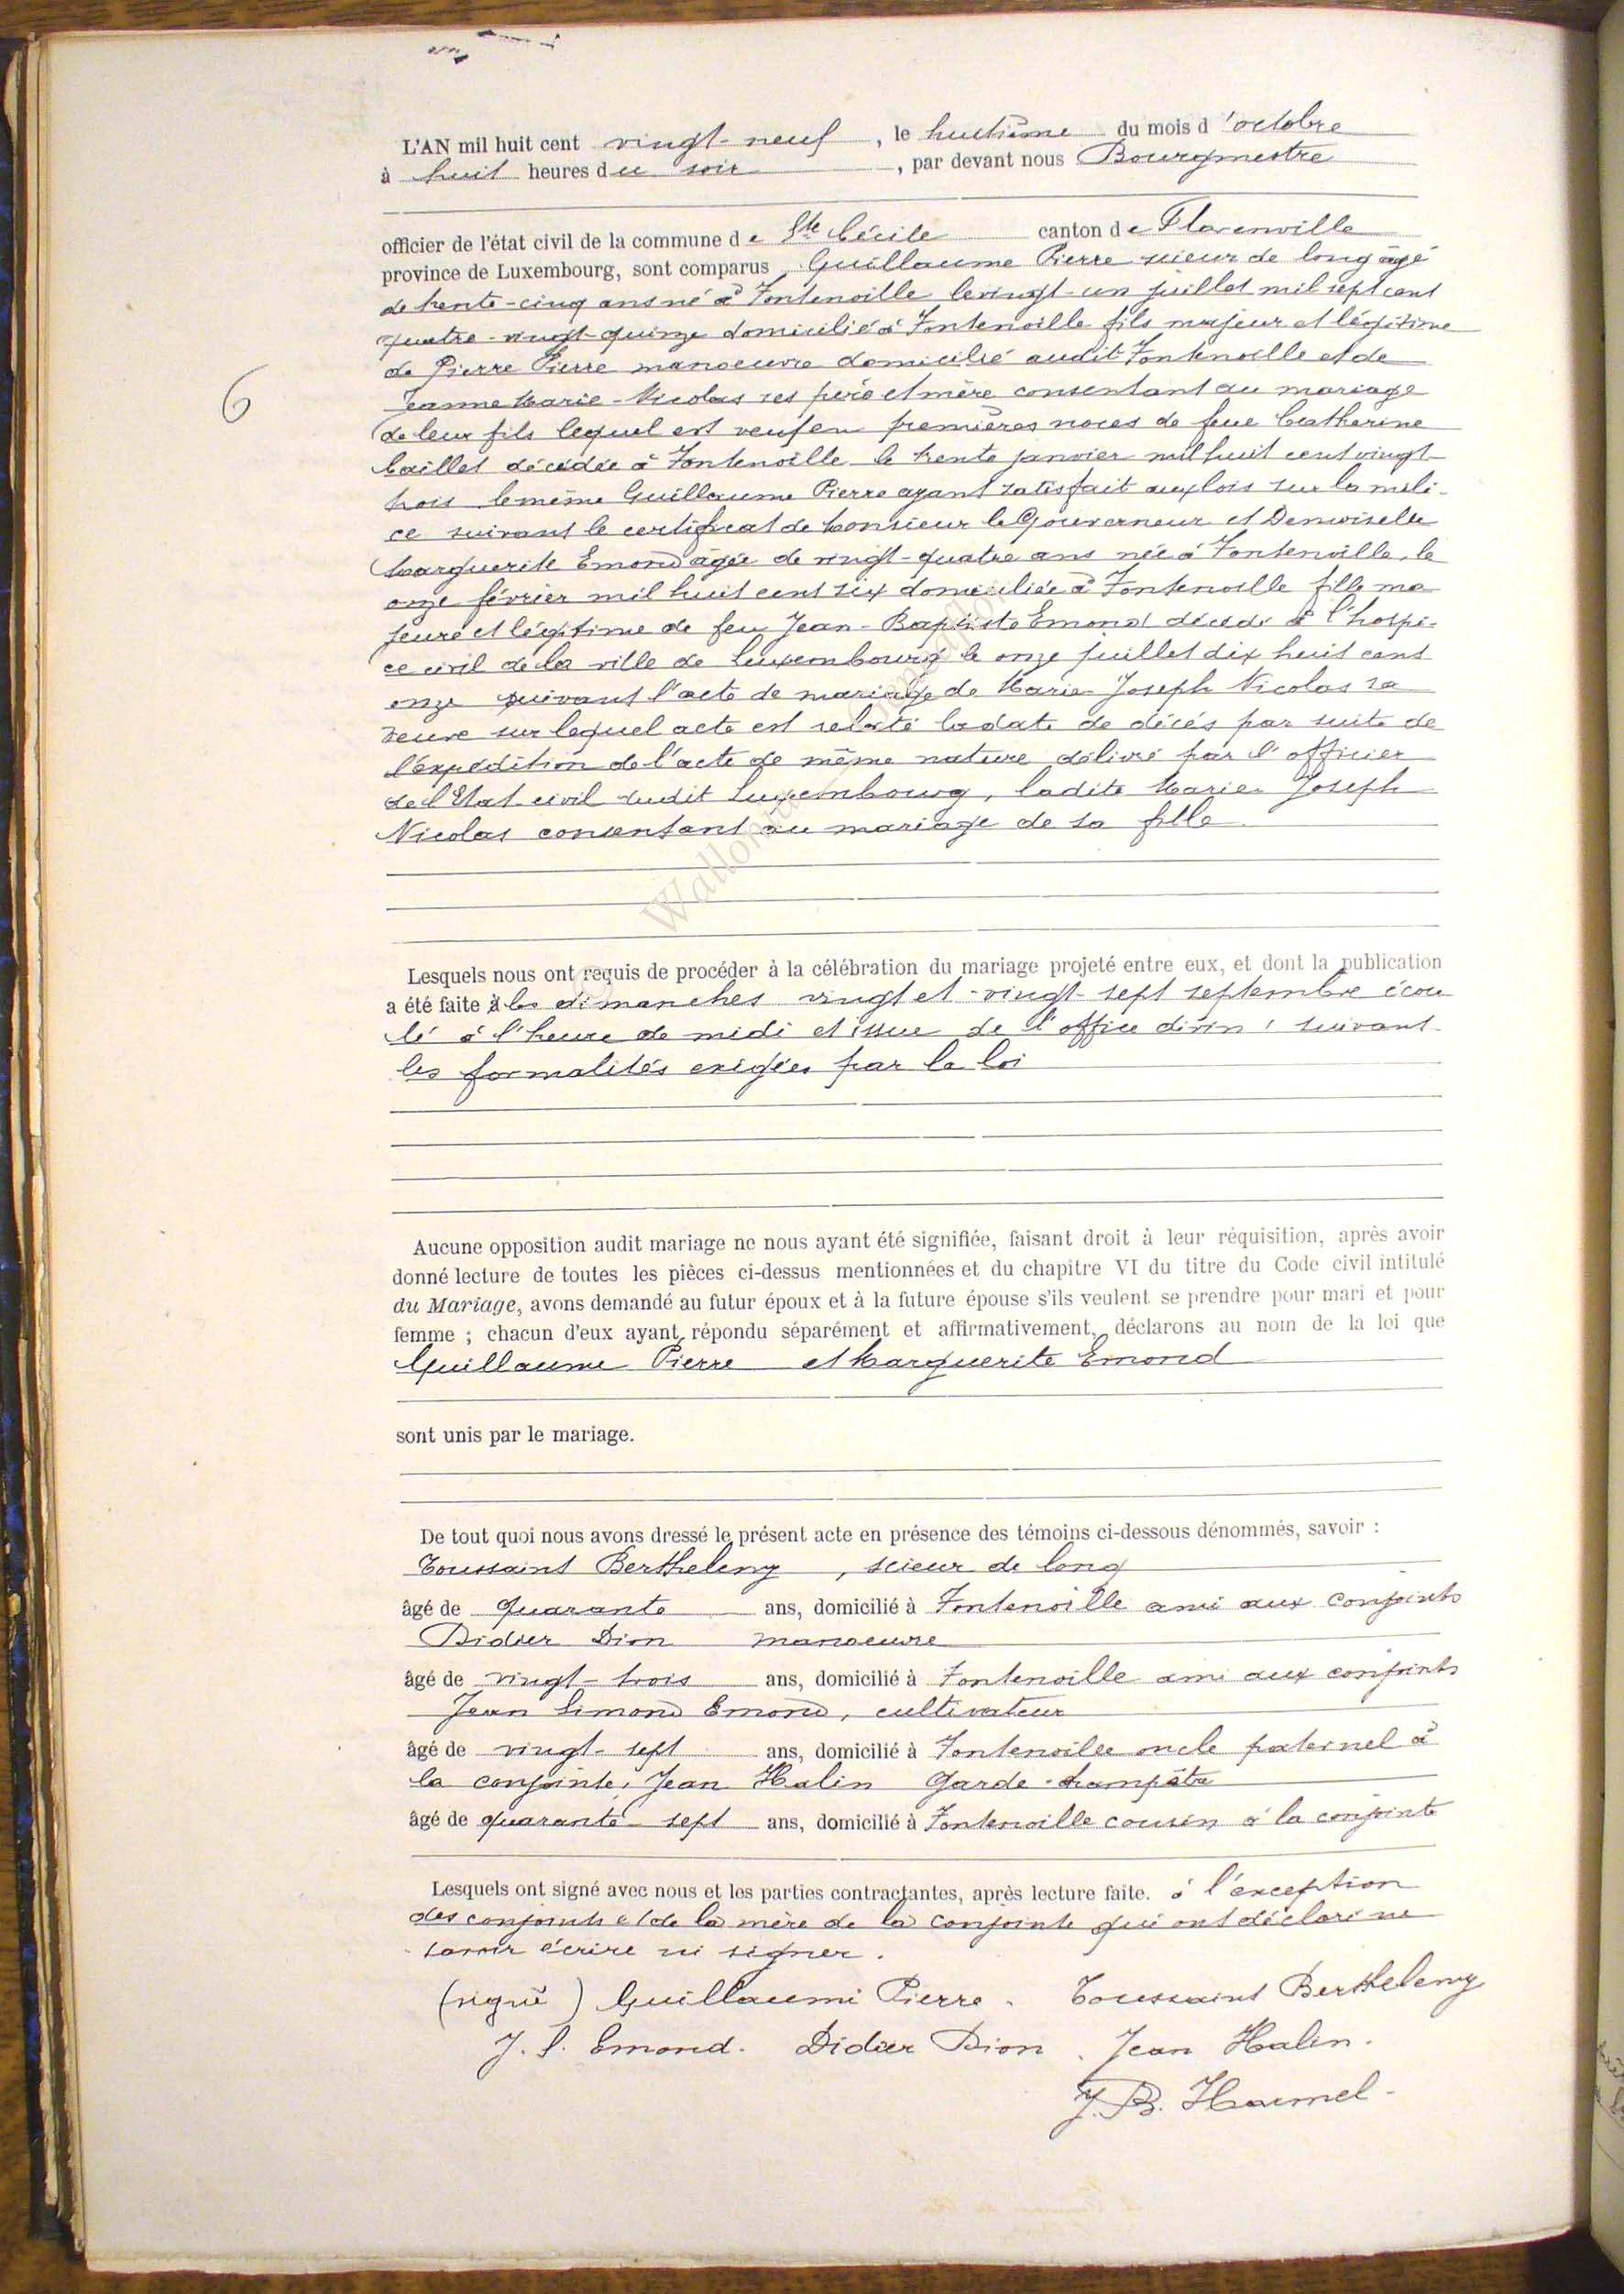 L'AN mil huit cent vingt-neuf, le huitième du mois d'octobre
à huit heures du soir, par devant nous Bourgmestre
officier de l'état civil de la commune de Ste Cécile canton de Florenville
province de Luxembourg, sont comparus Guillaume Pierre scieur de long âgé
de trente-cinq ans né à Fontenoille le vingt-un juillet mil sept cent
quatre-vingt-quinze domicilié à Fontenoille fils majeur et légitime
de Pierre Pierre manoeuvre domicilié audit Fontenoille et de
Jeanne Marie-Nicolas ses père et mère consentant au mariage
de leur fils lequel est veuf en premières noces de feue Catherine
Caillet décédée à Fontenoille le trente janvier mil huit cent vingt-
trois le même Guillaume Pierre ayant satisfait aux lois sur la mili-
ce suivant le certificat de Monsieur le Gouverneur et Demoiselle
Marguerite Emond âgée de vingt-quatre ans née à Fontenoille, le
onze février mil huit cent six domiciliée à Fontenoille fille ma
jeure et légitime de feu Jean-Baptiste Emond décédé à l'hospi-
ce civil de la ville de Luxembourg le onze juillet dix huit cent
onze suivant l'acte de mariage de Marie-Joseph Nicolas sa
veuve sur lequel acte est relaté la date de décès par suite de
l'expédition de l'acte de même nature délivré par l'officier
de l'Etat civil dudit Luxembourg, ladite Marie-Joseph
Nicolas consentant au mariage de sa fille
6
Lesquels nous ont requis de procéder à la célébration du mariage projeté entre eux, et dont la publication
a été faite à les dimanches vingt et vingt-sept septembre écou
lé à l'heure de midi et issue de l'office divin, suivant
les formalités exigées par la loi
Aucune opposition audit mariage ne nous ayant été signifiée, faisant droit à leur réquisition, après avoir
donné lecture de toutes les pièces ci-dessus mentionnées et du chapitre VI du titre du Code civil intitulé
du Mariage, avons demandé au futur époux et à la future épouse s'ils veulent se prendre pour mari et pour
femme ; chacun d'eux ayant répondu séparément et affirmativement, déclarons au nom de la loi que
Guillaume Pierre et Marguerite Emond
sont unis par le mariage.
De tout quoi nous avons dressé le présent acte en présence des témoins ci-dessous dénommés, savoir :
Toussaint Berthelemy, scieur de long
âgé de quarante ans, domicilié à Fontenoille ami aux conjoints
Didier Dion manoeuvre
âgé de vingt-trois ans, domicilié à Fontenoille ami aux conjoints
Jean Simond Emond, cultivateur
âgé de vingt-sept ans, domicilié à Fontenoille oncle paternel à
la conjointe, Jean Halin Garde-champêtre
âgé de quarante-sept ans, domicilié à Fontenoille cousin à la conjointe
Lesquels ont signé avec nous et les parties contractantes, après lecture faite. à l'exception
des conjoints et de la mère de la conjointe qui ont déclaré ne
savoir écrire ni signer.
(signé) Guillaume Pierre. Toussaint Berthelemy
J. S. Emond. Didier Dion. Jean Halin.
J. B. Hamel.